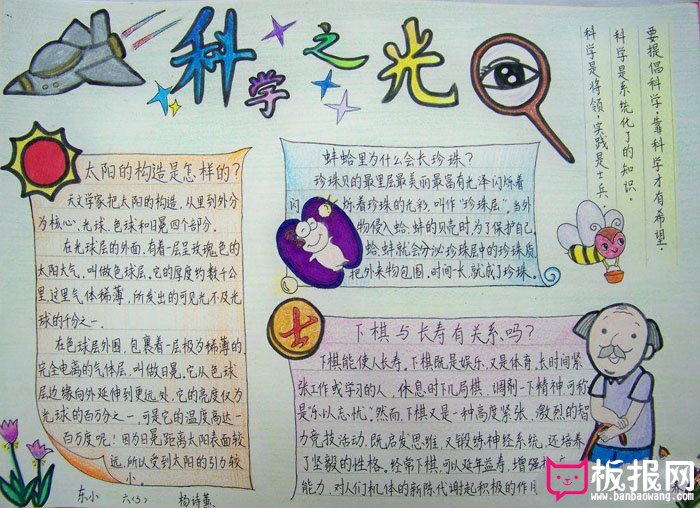 科学之光
要提倡科学，靠科学才有希望。
科学是系统化了的知识。
科学是将领，实践是士兵。
太阳的构造是怎样的？
天文学家把太阳的构造，从里到外分
为核心、光球、色球和日冕四个部分。
在光球层的外面，有着一层呈玫瑰色的
太阳大气，叫做色球层。它的厚度约数千公
里，这里气体稀薄，所发出的可见光不及光
球的千分之一。
在色球层外围，包裹着一层极为稀薄的、
完全电离的气体层，叫做日冕。它从色球
层边缘向外延伸到更远处，它的亮度仅为
光球的百万分之一，可是它的温度高达一
百万度呢！因为日冕距离太阳表面较
远，所以受到太阳的引力较
小。
东小 六(3) 杨诗
蚌蛤里为什么会长珍珠？
珍珠贝的最里层最美丽最富有光泽闪烁着
闪烁着珍珠的光彩，叫作“珍珠层”。当外
物侵入蛤、蚌的贝壳时，为了保护自己，
蛤、蚌就会分泌珍珠层中的珍珠质
把外来物包围，时间一长，就成了珍珠。
士
下棋与长寿有关系吗？
下棋能使人长寿。下棋既是娱乐，又是体育，长时间紧
张工作或学习的人，休息时下几局棋，调剂一下精神，可称
是“乐以忘忧”。然而，下棋又是一种高度紧张、激烈的智
力竞技活动，既启发思维，又锻炼神经系统，还培养
了坚毅的性格。经常下棋，可以延年益寿，增强
能力，对人们机体的新陈代谢起积极的作用
板报网
www.banbaowang.com